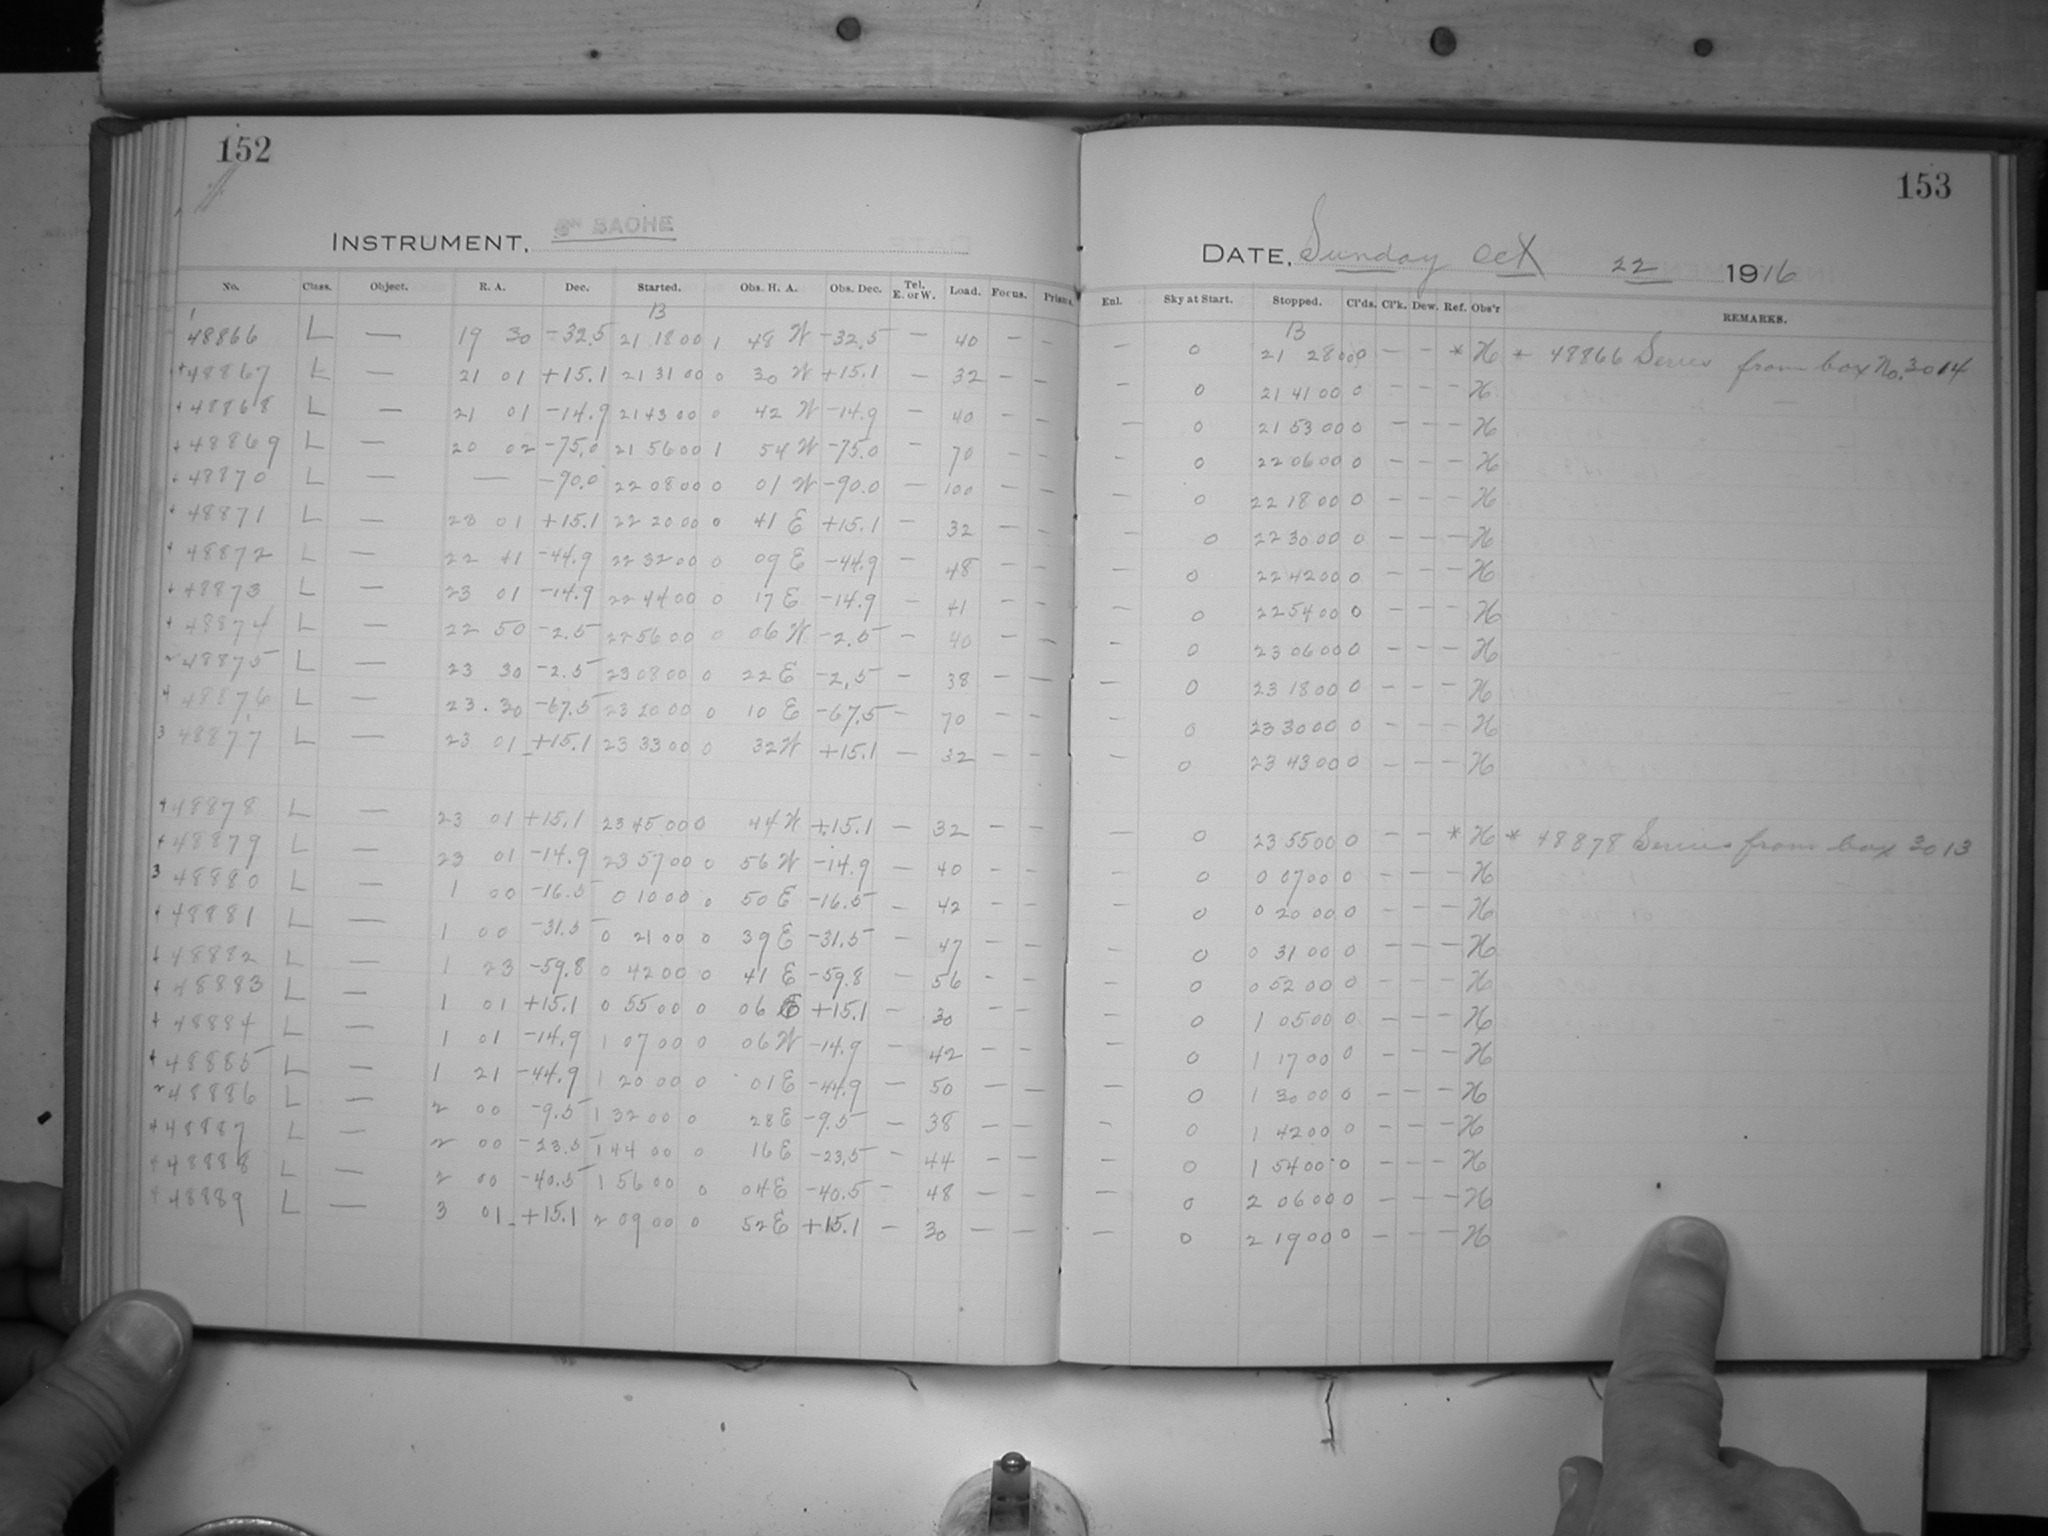 152
INSTRUMENT.
No. Class. Object. R. A. Dec. Started. Obs. H. A. Obs. Dec. Tel. E. or W. Load. Focus. Prisms.
B
48866 L — 19 30 -32.5 21 18 00 1 48 W -32.5 — 40 — —
+48867 L — 21 01 +15.1 21 31 00 0 30 W +15.1 — 32 — —
+48868 L — 21 01 -14.9 21 43 00 0 42 W -14.9 — 40 — —
+48869 L — 20 02 -75.0 21 56 00 1 54 W -75.0 — 70 — —
48870 L — — -90.0 22 08 00 0 01 W -90.0 — 100 — —
48871 L — 23 01 +15.1 22 20 00 0 41 E +15.1 — 32 — —
48872 L — 22 41 -44.9 22 32 00 0 09 E -44.9 — 48 — —
+48873 L — 23 01 -14.9 22 44 00 0 17 E -14.9 — 41 — —
48874 L — 22 50 -2.5 22 56 00 0 06 W -2.5 — 40 — —
48875 L — 23 30 -2.5 23 08 00 0 22 E -2.5 — 38 — —
48876 L — 23.30 -67.5 23 20 00 0 10 E -67.5 — 70 — —
3 48877 L — 23 01 +15.1 23 33 00 0 32 W +15.1 — 32 — —
+48878 L — 23 01 +15.1 23 45 00 0 44 W +15.1 — 32 — —
+48879 L — 23 01 -14.9 23 57 00 0 56 W -14.9 — 40 — —
3 48880 L — 1 00 -16.5 0 10 00 0 50 E -16.5 — 42 — —
+48881 L — 1 00 -31.5 0 21 00 0 39 E -31.5 — 47 — —
48882 L — 1 23 -59.8 0 42 00 0 41 E -59.8 — 56 — —
48883 L — 1 01 +15.1 0 55 00 0 06 E +15.1 — 30 — —
48884 L — 1 01 -14.9 1 07 00 0 06 W -14.9 — 42 — —
+48885 L — 1 21 -44.9 1 20 00 0 01 E -44.9 — 50 — —
48886 L — 2 00 -9.5 1 32 00 0 28 E -9.5 — 38 — —
+48887 L — 2 00 -23.5 1 44 00 0 16 E -23.5 — 44 — —
48888 L — 2 00 -40.5 1 56 00 0 04 E -40.5 — 48 — —
48889 L — 3 01 +15.1 2 09 00 0 52 E +15.1 — 30 — —
153
DATE, Sunday Oct 22 1916
Enl. Sky at Start. Stopped. Cl'ds. Cl'k. Dew. Ref. Obs'r REMARKS.
B
— 0 21 28 00 0 — — * H * 48866 Series from box No. 3014
— 0 21 41 00 0 — — — H
— 0 21 53 00 0 — — — H
0 22 06 00 0 — — — H
— 0 22 18 00 0 — — — H
— 0 22 30 00 0 — — — H
— 0 22 42 00 0 — — — H
— 0 22 54 00 0 — — — H
— 0 23 06 00 0 — — — H
— 0 23 18 00 0 — — — H
— 0 23 30 00 0 — — — H
— 0 23 43 00 0 — — — H
— 0 23 55 00 0 — — * H * 48878 Series from box 3013
— 0 0 07 00 0 — — — H
— 0 0 20 00 0 — — — H
— 0 0 31 00 0 — — — H
— 0 0 52 00 0 — — — H
— 0 1 05 00 0 — — — H
— 0 1 17 00 0 — — — H
— 0 1 30 00 0 — — — H
— 0 1 42 00 0 — — — H
— 0 1 54 00 0 — — — H
— 0 2 06 00 0 — — — H
— 0 2 19 00 0 — — — H